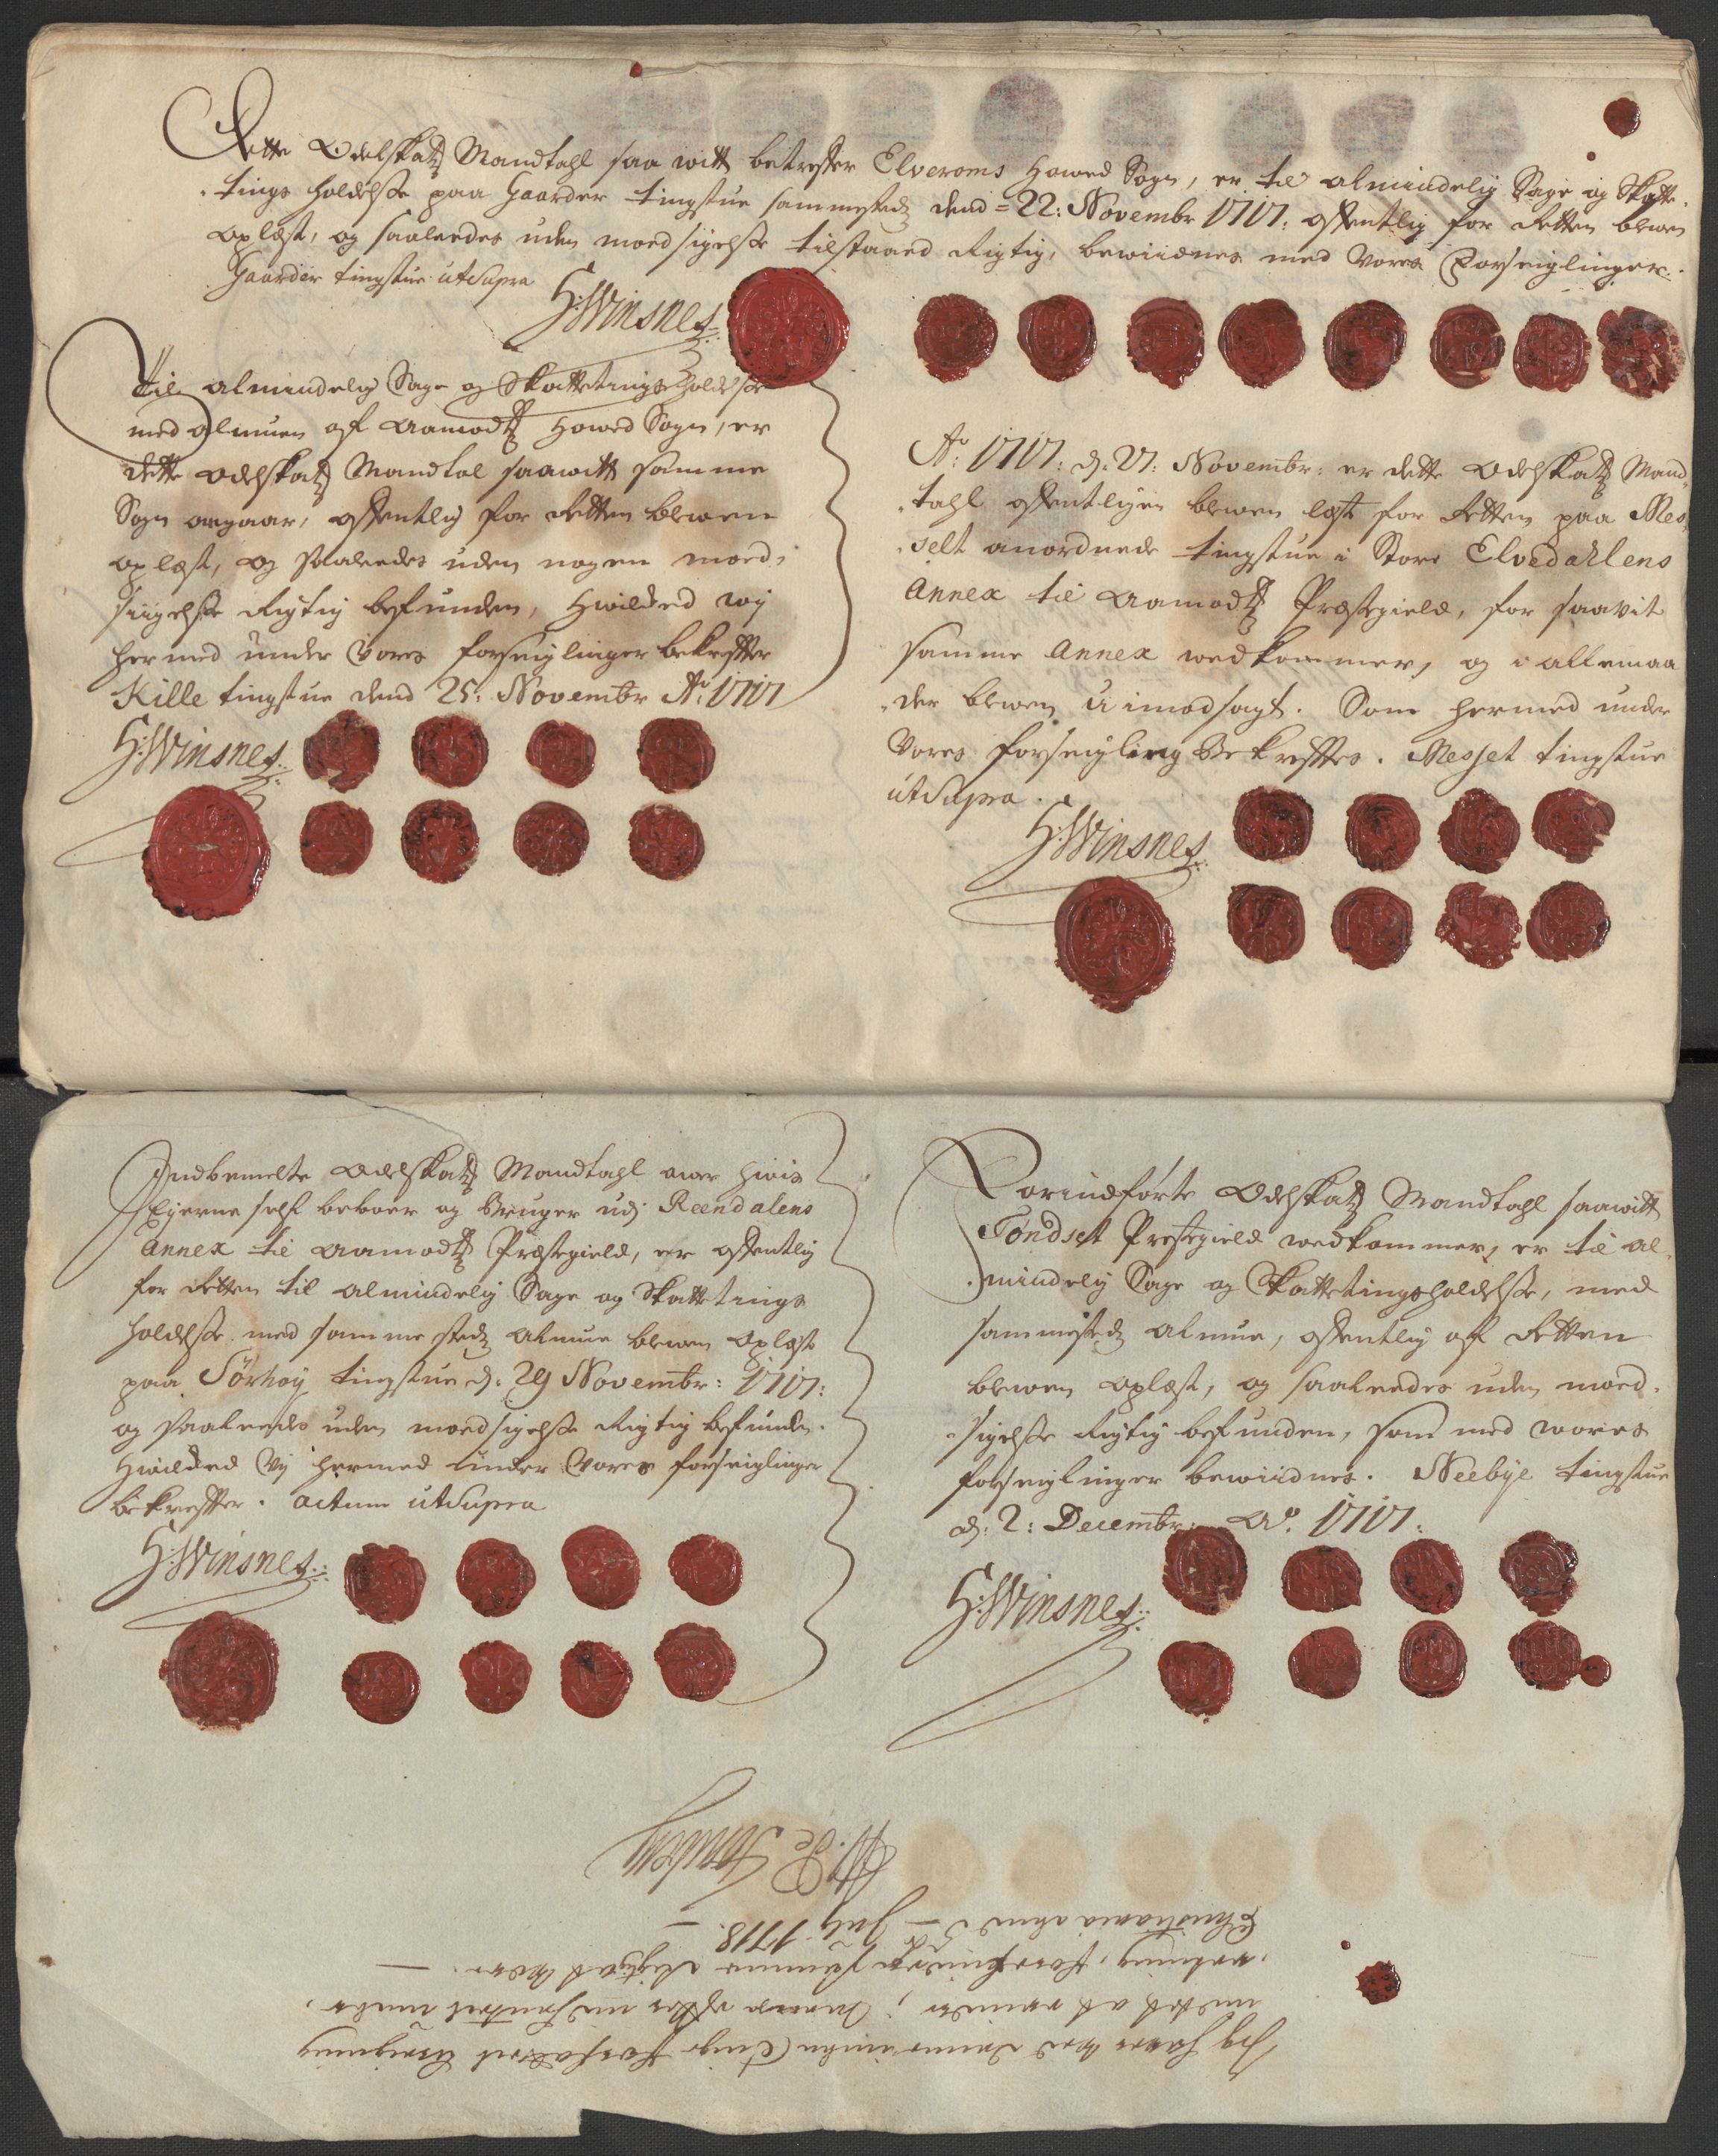 Dette Odelskatz Mandtahl saa witt betreffer Elveroms Howed Sogn, er til almindelig Sage og Skatte,
tings holdelsse paa Gaarder tingstue sammestedz dend = 22: Novembr 1717: offentlig for Retten blewen
oplæst, og saaleedes uden moedsigelsse tilstaaed Rigtig, bewiidnes med Vores Forseiglinger.
Gaarder tingstue utsupra
H:Winsnes
Til almindelig Sage og Skattetings Holdelsse
med Almuen af Aamodtz Howed Sogn, er
dette Odelskatz Mandtal saawitt samme
Sogn angaar, offentlig for Retten blewen
oplæst, og saaleedes uden nogen moed,
siigelsse Rigtig befunden, Hwilked wij
hermed under Vores forseiglinger bekreffter
Kille tingstue dend 25: Novembr Ao: 1717
H:Winsnes
Ao: 1717: d: 27: Novembr: er dette Odelskatz Mand,
tahl offentligen blewen læst for Retten paa Mes,
selt anordnede tingstue i Store Elvedahlens
Annex til Aamodtz Præstegield, for saavit
samme Annex wedkommer, og i allemaa
der blewen u imodsagt. Som hermed under
Vores forseigling Bekrefftes. Messelt tingstue
utsupra.
H:Winsnes
Indbemelte Odelskatz Mandtahl over hwis
Eyerne self beboer og Bruger udj Reendalens
Annex til Aamodtz Præstegield, er offentlig
for Retten til almindelig Sage og Skattetings
holdelsse med sammestedz Almue blewen Oplæst
paa Sörhøy tingstue d: 29 Novembr: 1717:
og saaleedes uden moedsigelsse Rigtig befunden.
Hwilked Vij hermed under Vores forseiglinger
bekreffter. Actum utsupra
H:Winsnes
Forindförte Odelskatz Mandtahl saawitt
Töndset Prestegield wedkommer, er til al,
mindelig Sage og Skattetingsholdelsse, med
sammestedz Almue, offentlig af Retten
blewen oplæst, og saaleedes uden moed,
sigelsse Rigtig befunden, som med wores
forseiglinger bewiidnes. Neebye tingstue
d: 2: Decembr: Ao. 1717:
H:Winsnes
Jeg haver ved denne inden Tings
at
Christiania dend 5 July 1718.